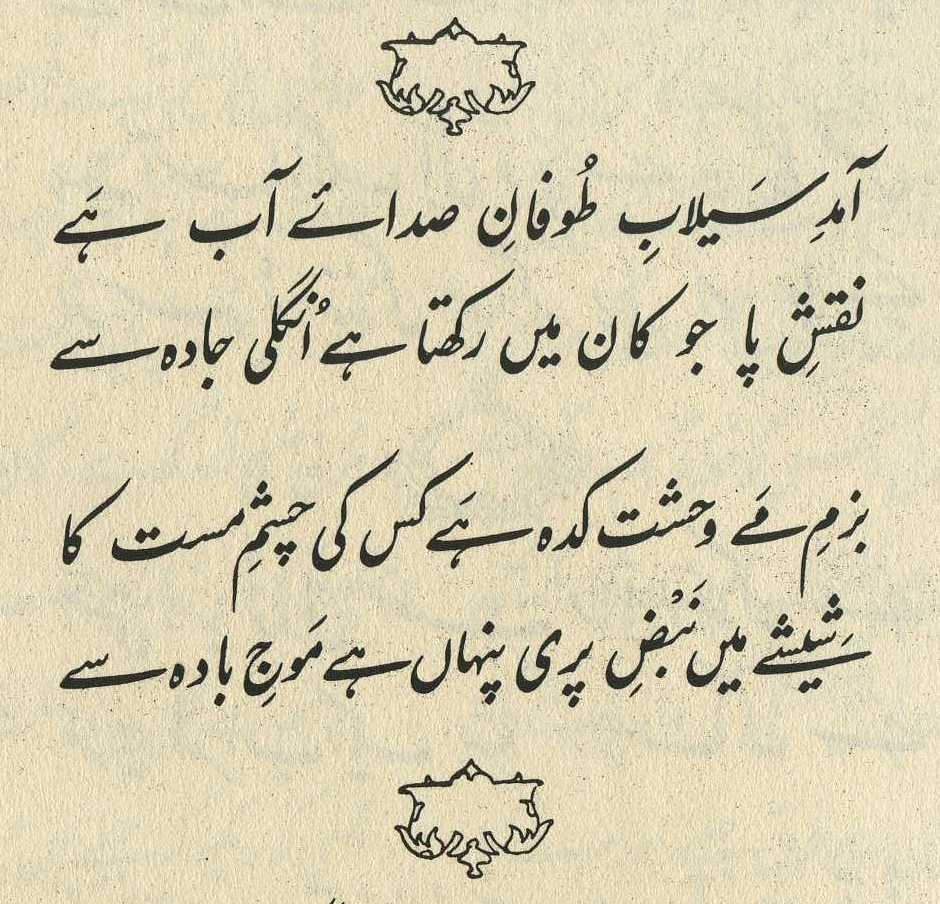 آمدِ سَیلابِ طُوفانِ صدائے آب ہَے
نقشِ پا جو کان میں رکھتا ہے اُنگلی جادہ سے
بزمِ مَے وحشت کدہ ہَے کس کی چشمِ مست کا
شِیشے میں نَبْضِ پری پنہاں ہے مَوجِ بادہ سے